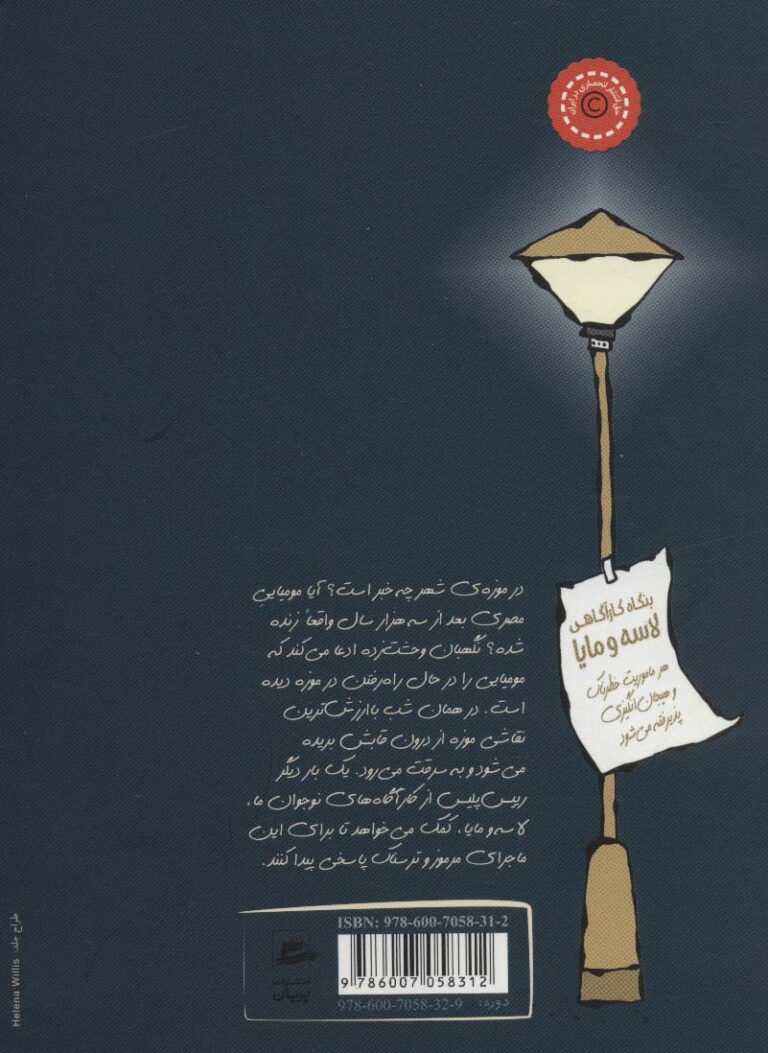 حق انتشار انحصاری در ایران
©
بنگاه کارآگاهی
لاسه و مایا
هر ماموریت خطرناک
و هیجان‌انگیزی
پذیرفته می‌شود
در موزه‌ی شهر چه خبر است؟ آیا مومیایی
مصری بعد از سه هزار سال واقعاً زنده
شده؟ نگهبان وحشت‌زده ادعا می‌کند که
مومیایی را در حال راه‌رفتن در موزه دیده
است. در همان شب باارزش‌ترین
نقاشی موزه از درون قابش بریده
می‌شود و به سرقت می‌رود. یک بار دیگر
رییس‌پلیس از کارآگاه‌های نوجوان ما،
لاسه و مایا، کمک می‌خواهد تا برای این
ماجرای مرموز و ترسناک پاسخی پیدا کنند.
ISBN: 978-600-7058-31-2
9 786007 058312
دوره: 978-600-7058-32-9
پریان
طراح جلد: Helena Willis